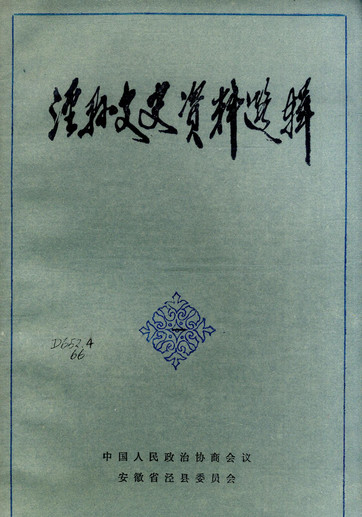 泾县文史资料选辑
一
D652.4
66
中国人民政治协商会议
安徽省泾县委员会